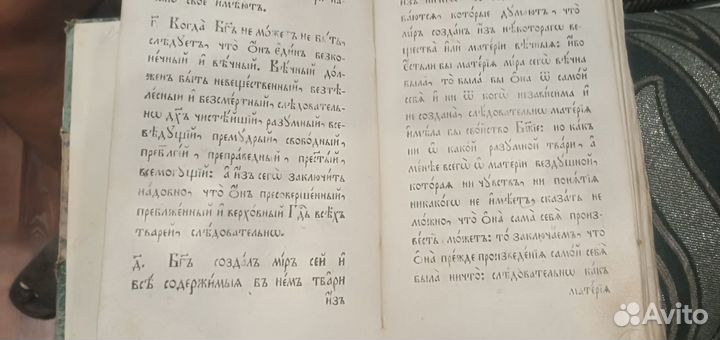 мно свое имѣютъ.
г҃. Когда Бг҃ъ не можетъ не быть,
слѣдуетъ, что Ѻнъ единъ безко-
нечный и вѣчный. Вѣчный дол-
женъ быть невещественный, безтѣ-
лесный и безсмертный, слѣдователь-
нѡ дх҃ъ чистѣйшїй, разумный, все-
вѣдущїй, премудрый, свободный,
преблгїй, преправедный, престый,
всемогущїй: а изъ сегѡ заключить
надобно, что Ѻнъ пресовершенный,
преблаженный и верховный Гдь всѣхъ
тварей, слѣдовательнѡ.
д҃. Бг҃ъ создалъ мїръ сей и
всѣ содержимыя въ немъ твари
изъ
ваются, которые думаютъ, что
мїръ созданъ изъ нѣкотораго ве-
щества или матерїи вѣчныя: ибо
если бы матерїя мїра сегѡ вѣчна
была, то была бы Ѻна ѿ самой
себя и ни ѿ когѡ независима и
не создана, слѣдовательнѡ матерїя
имѣла бы свойство Бж҃їе: но какъ
ни ѿ какой разумной твари, а
менѣе всегѡ ѿ матерїи бездушной,
которая ни чувствъ, ни понятїя
никакогѡ не имѣетъ, сказать не
можно, что Ѻна сама себя произ-
весть можетъ: то заключаемъ, что
Ѻна прежде произведенїя самой себя
была ничто: слѣдовательнѡ какъ
матерїя
Avito